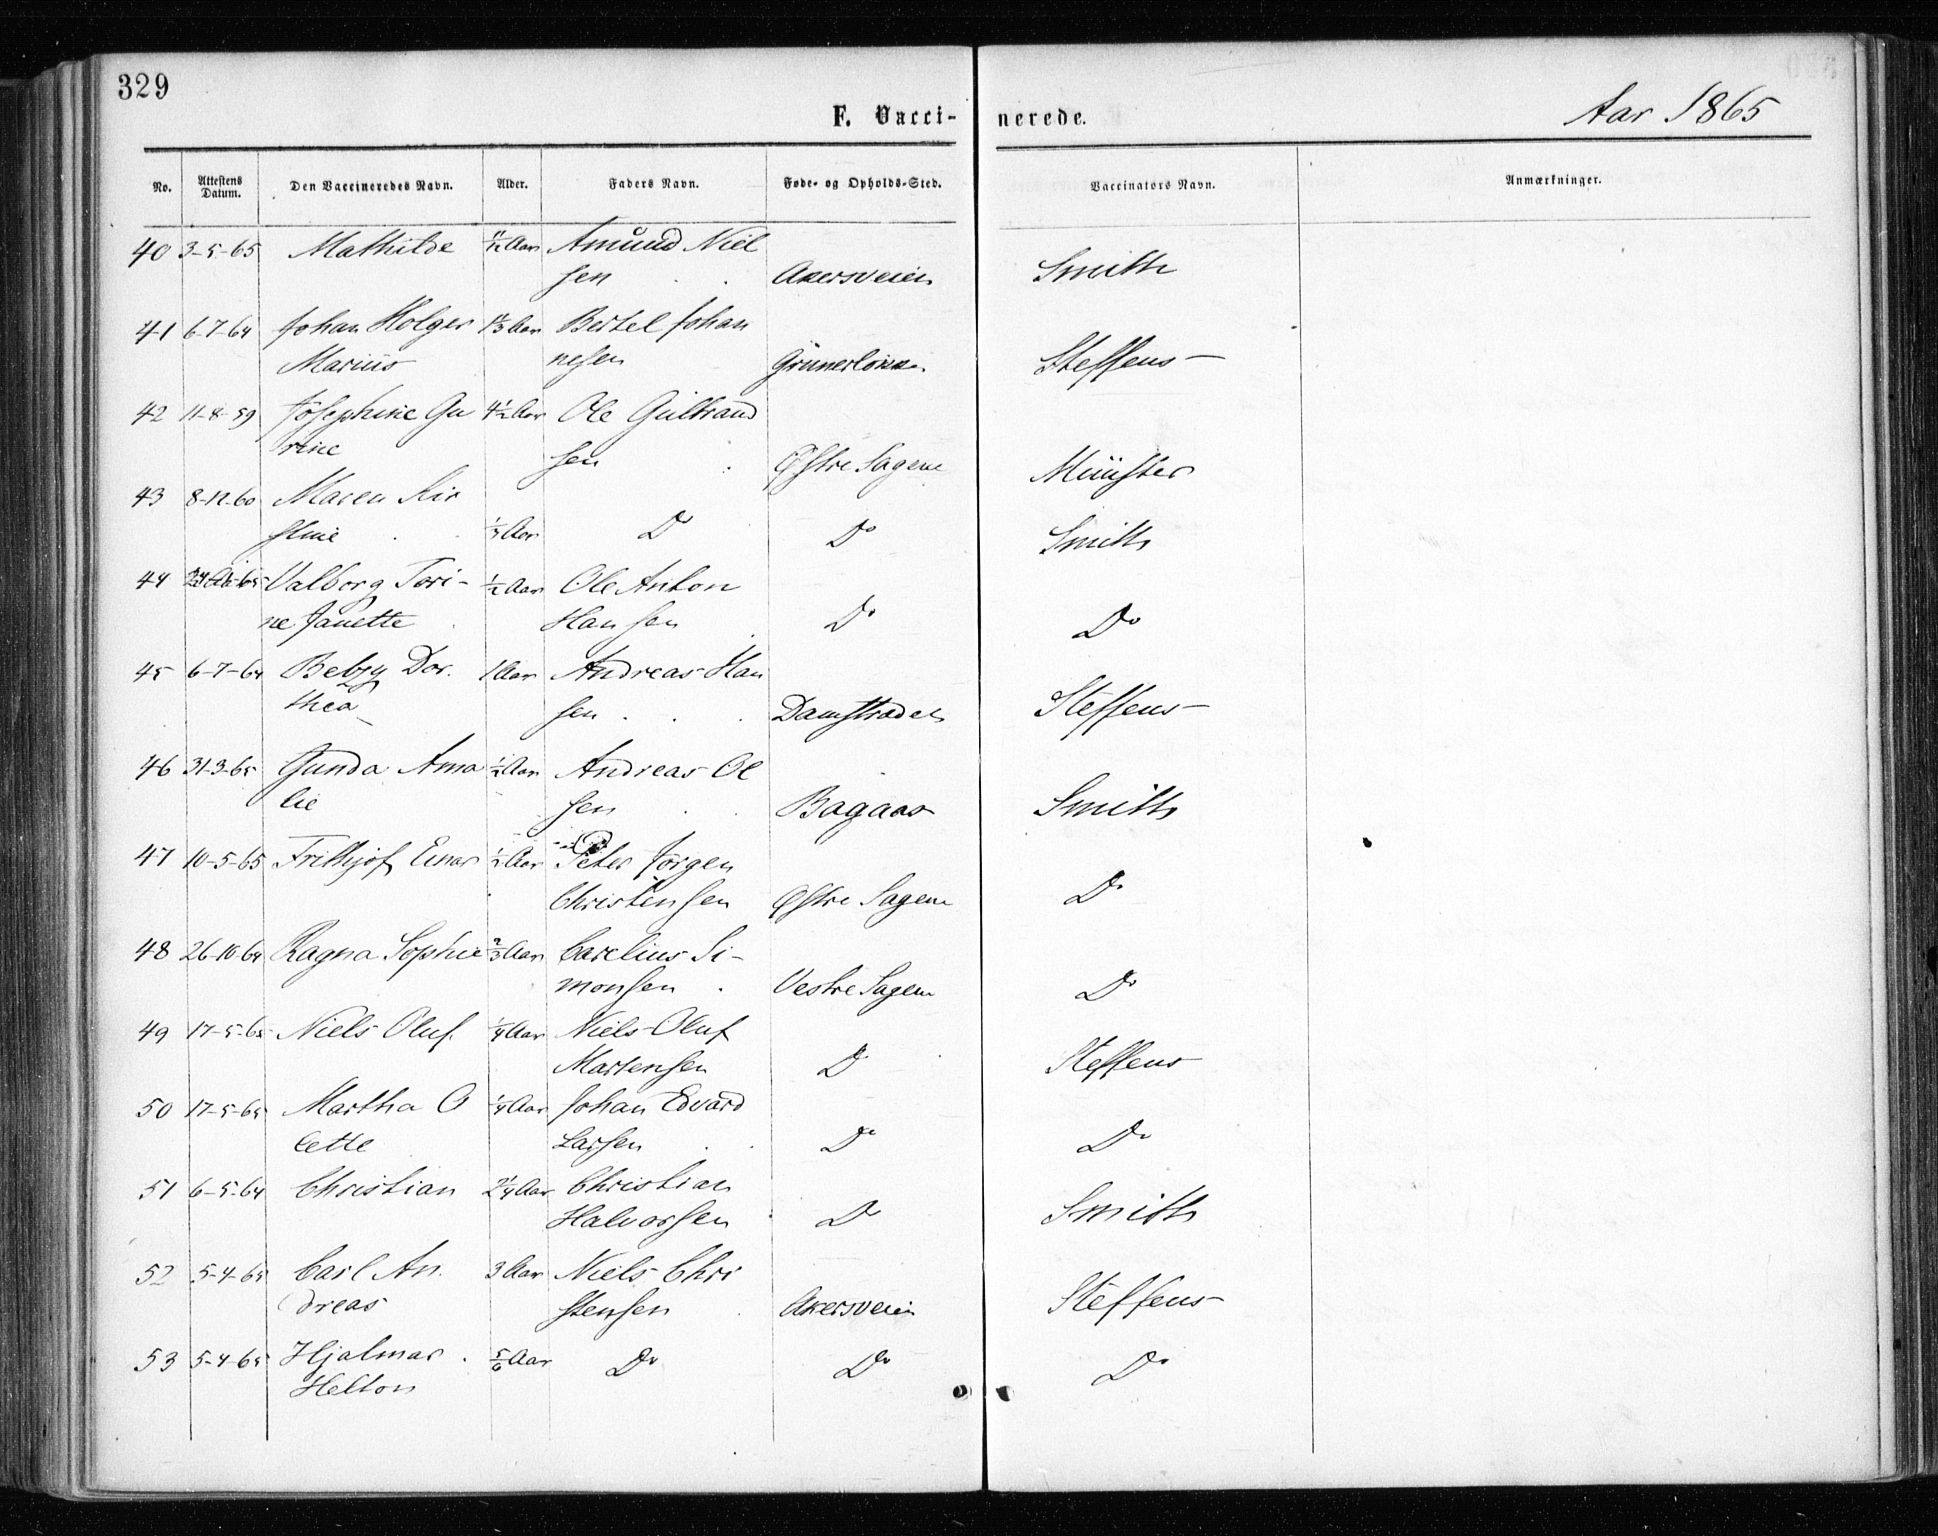 329
F. Vacci- nerede.
Aar 1865
No. Attestens Datum. Den Vaccineredes Navn. Alder. Faders Navn. Føde- og Opholds-Sted. Vaccinators Navn. Anmærkninger.
40 3-5-65 Mathilde 11/12 Aar Amund Niel
sen Akersveien Smith
41 6-7-64 Johan Holger 1 2/3 Aar Bertel Johan
Marius nesen Grünerløkken Steffens
42 11-8-59 Josephine Gu 4 1/2 Aar Ole Gulbrand
rine sen Østre Sagene Münster
43 8-12-60 Maren Kir
stine 1/3 Aar Do Do Smith
44 Valborg Tori- 1/2 Aar Ole Anton
ne Janette Hansen Do Do
45 6-7-64 Betzy Dor. 1 Aar Andreas Han
thea sen Damstrædet Steffens
46 31-3-65 Gunda Ama 1/2 Aar Andreas Ol
lie sen Bagaas Smith
47 10-5-65 Frithjof Einar 1/2 Aar Peter Jørgen
Christensen Østre Sagene Do
48 26-10-64 Ragna Sophie 2/3 Aar Carelius Si-
monsen Vestre Sagene Do
49 17-5-65 Niels Oluf. 1/4 Aar Niels Oluf
Martensen Do Steffens
50 17-5-65 Martha O 1/4 Aar Johan Edvard
lette Larsen Do Do
51 6-5-64 Christian 2 1/4 Aar Christian
Halvorsen Do Smith
52 5-4-65 Carl An. 3 Aar Niels Chri
dreas stensen Akersveien Steffens
53 5-4-65 Hjalmar 5/6 Aar Do Do Do
Helton